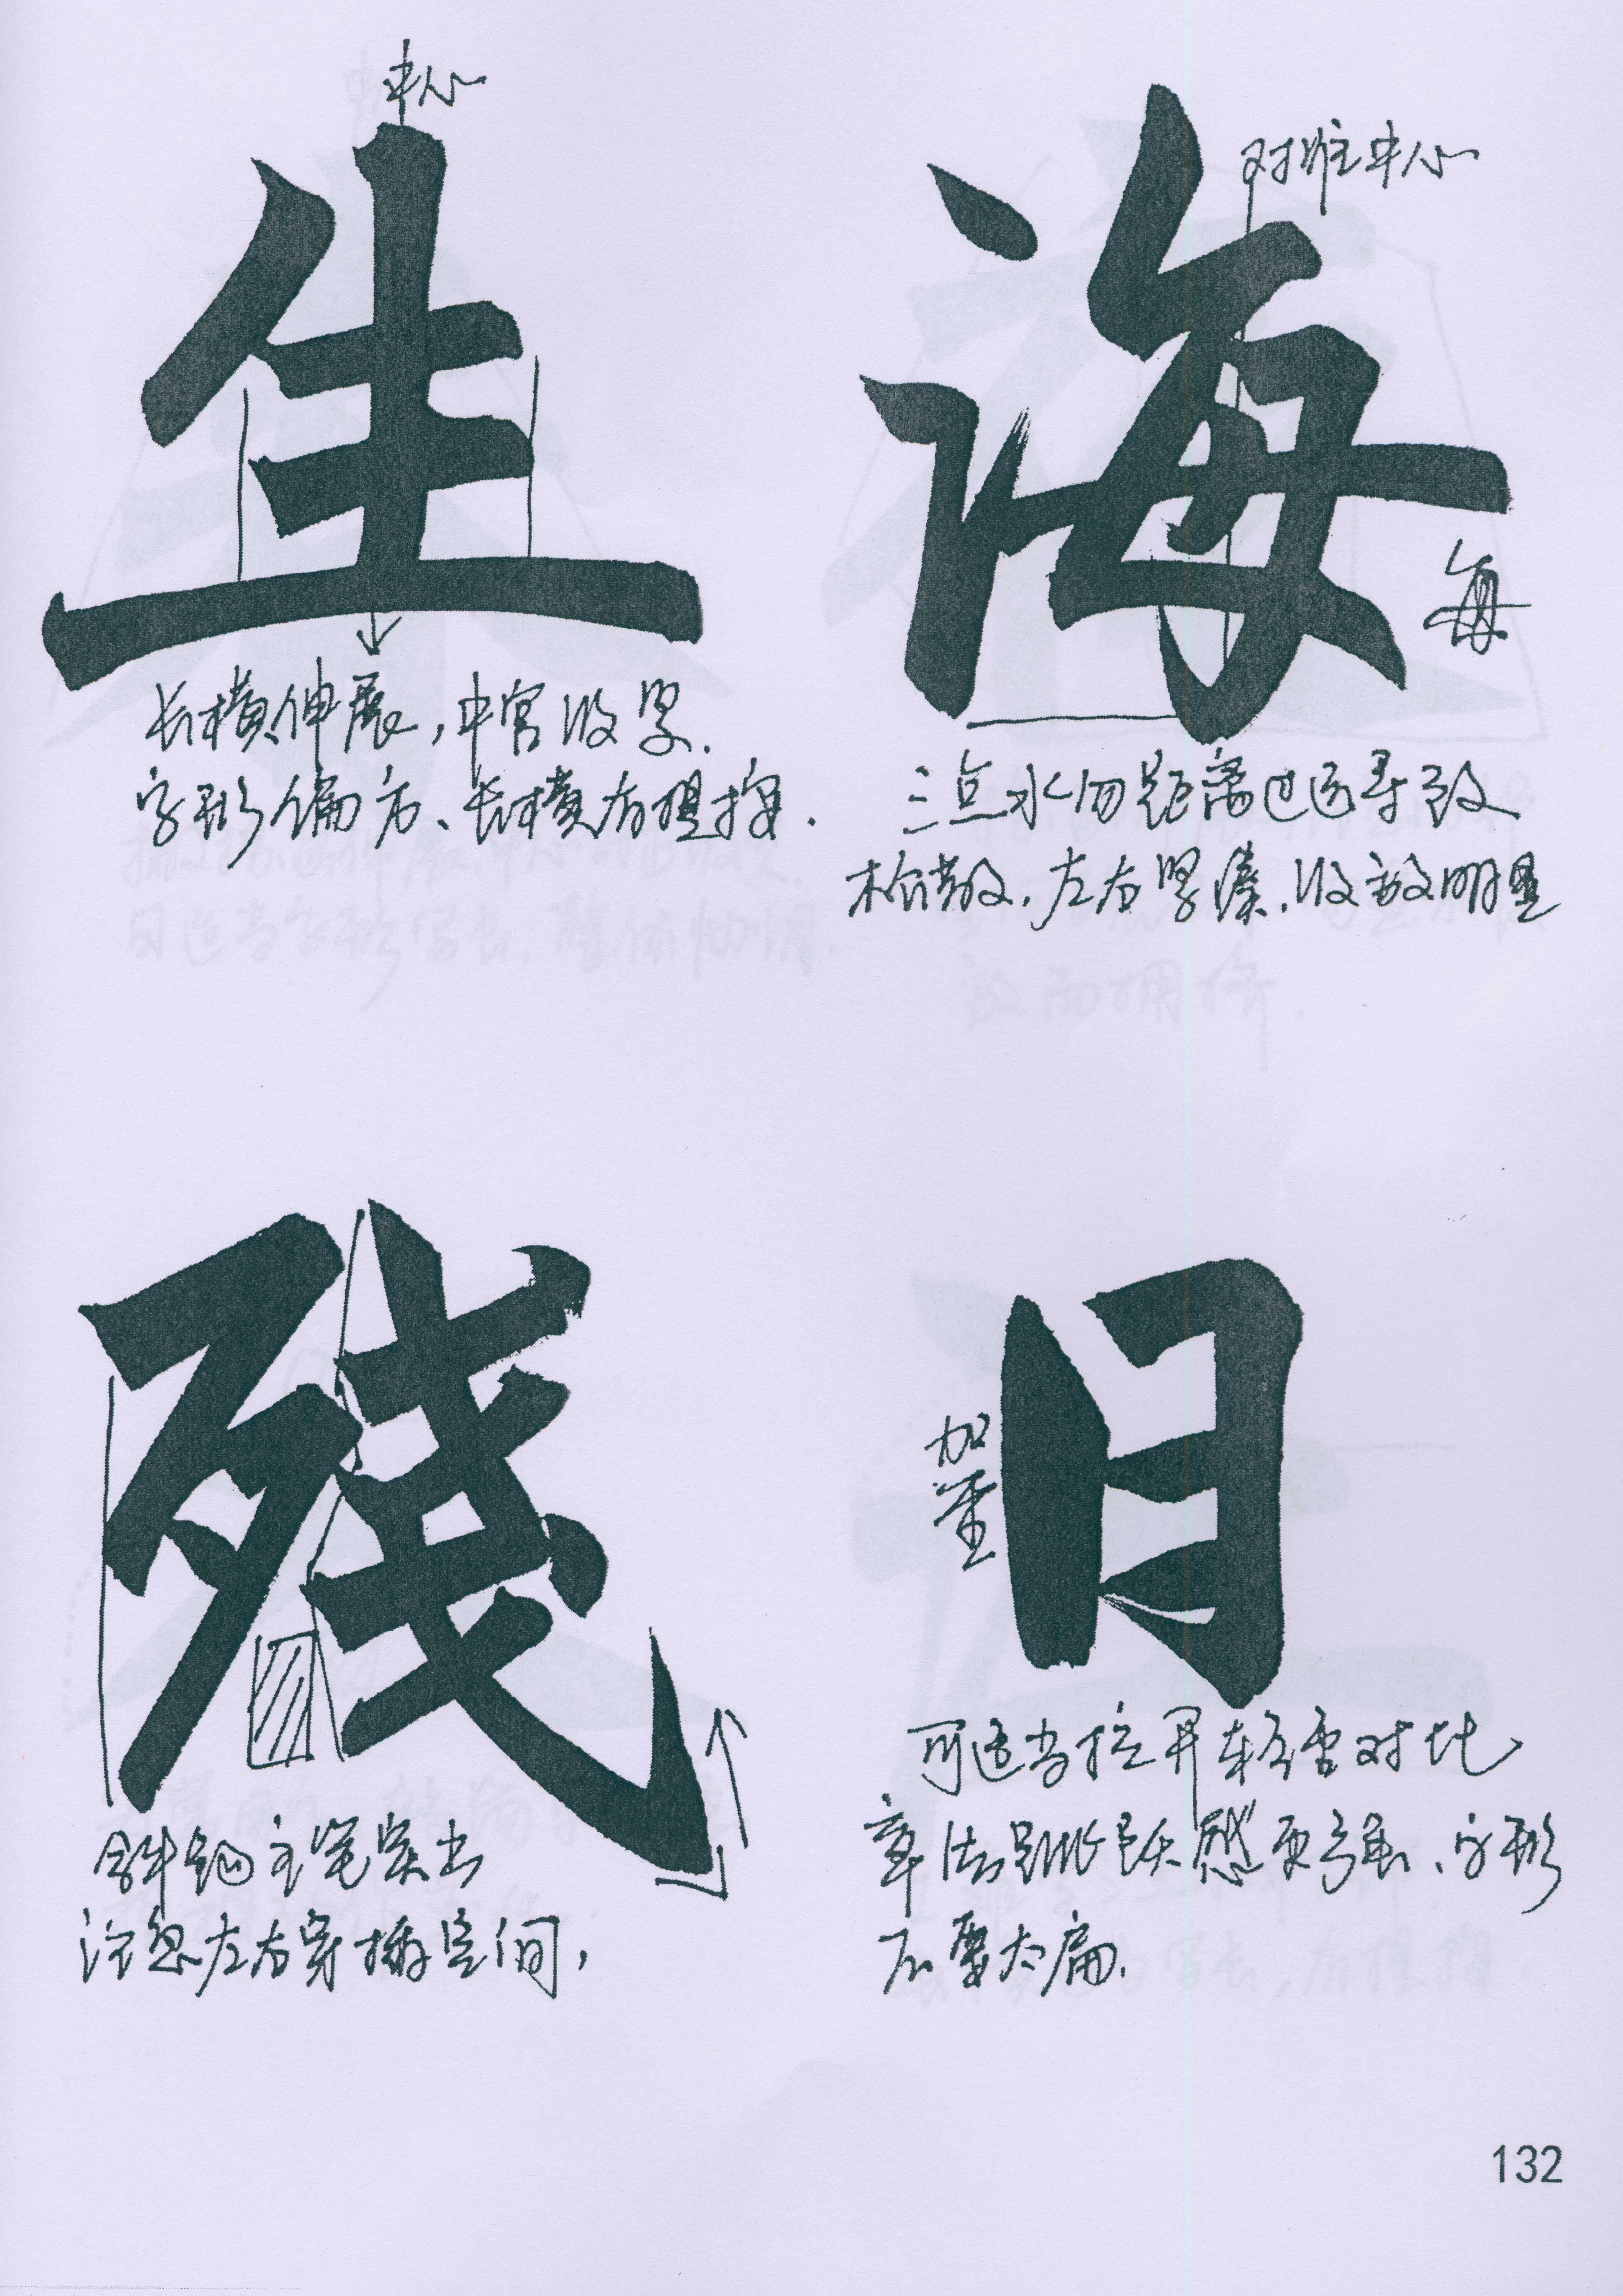 中心
生
长横伸展,中宫收紧.
字形偏方、长横有提按.
对准中心
海
每
三点水勿距离过远导致
松散.左右紧凑.收放明显
残
斜钩主笔突出
注意左右穿插空间,
日
加重
可适当拉开轻重对比
章法跳跃感更强、字形
不要太扁.
132